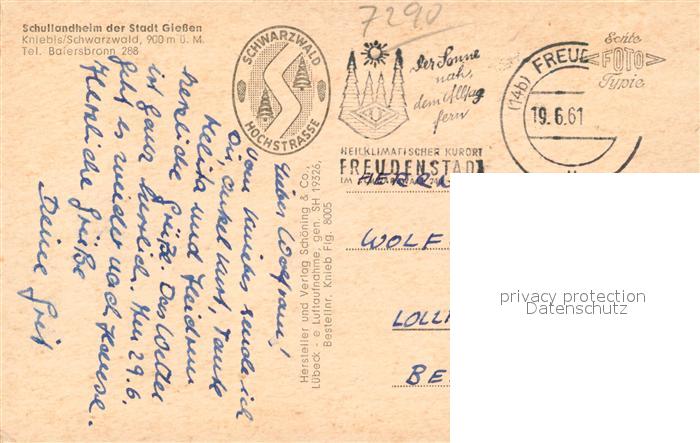 Schullandheim der Stadt Gießen
Kniebis/Schwarzwald, 900 m ü. M.
Tel. Baiersbronn 288
7290
SCHWARZWALD
HOCHSTRASSE
Der Sonne
nah,
dem Alltag
fern
HEILKLIMATISCHER KURORT
FREUDENSTADT
(14b) FREUD
19.6.61
Echte
FOTO
Typie
Lieber Wolfram!
Vom Kniebis sende ich
Dir, Onkel Kurt, Tante
Lolita und Heidrun
herzliche Grüße. Das Wetter
ist ganz herrlich. Am 29.6.
geht es wieder nach Hause.
Herzliche Grüße
Deine Grit
Hersteller und Verlag Schöning & Co.,
Lübeck - e Luftaufnahme, gen. SH 19326,
Bestellnr. Knieb Flg. 8005
HERRN
WOLF
LOLL
BE
privacy protection
Datenschutz